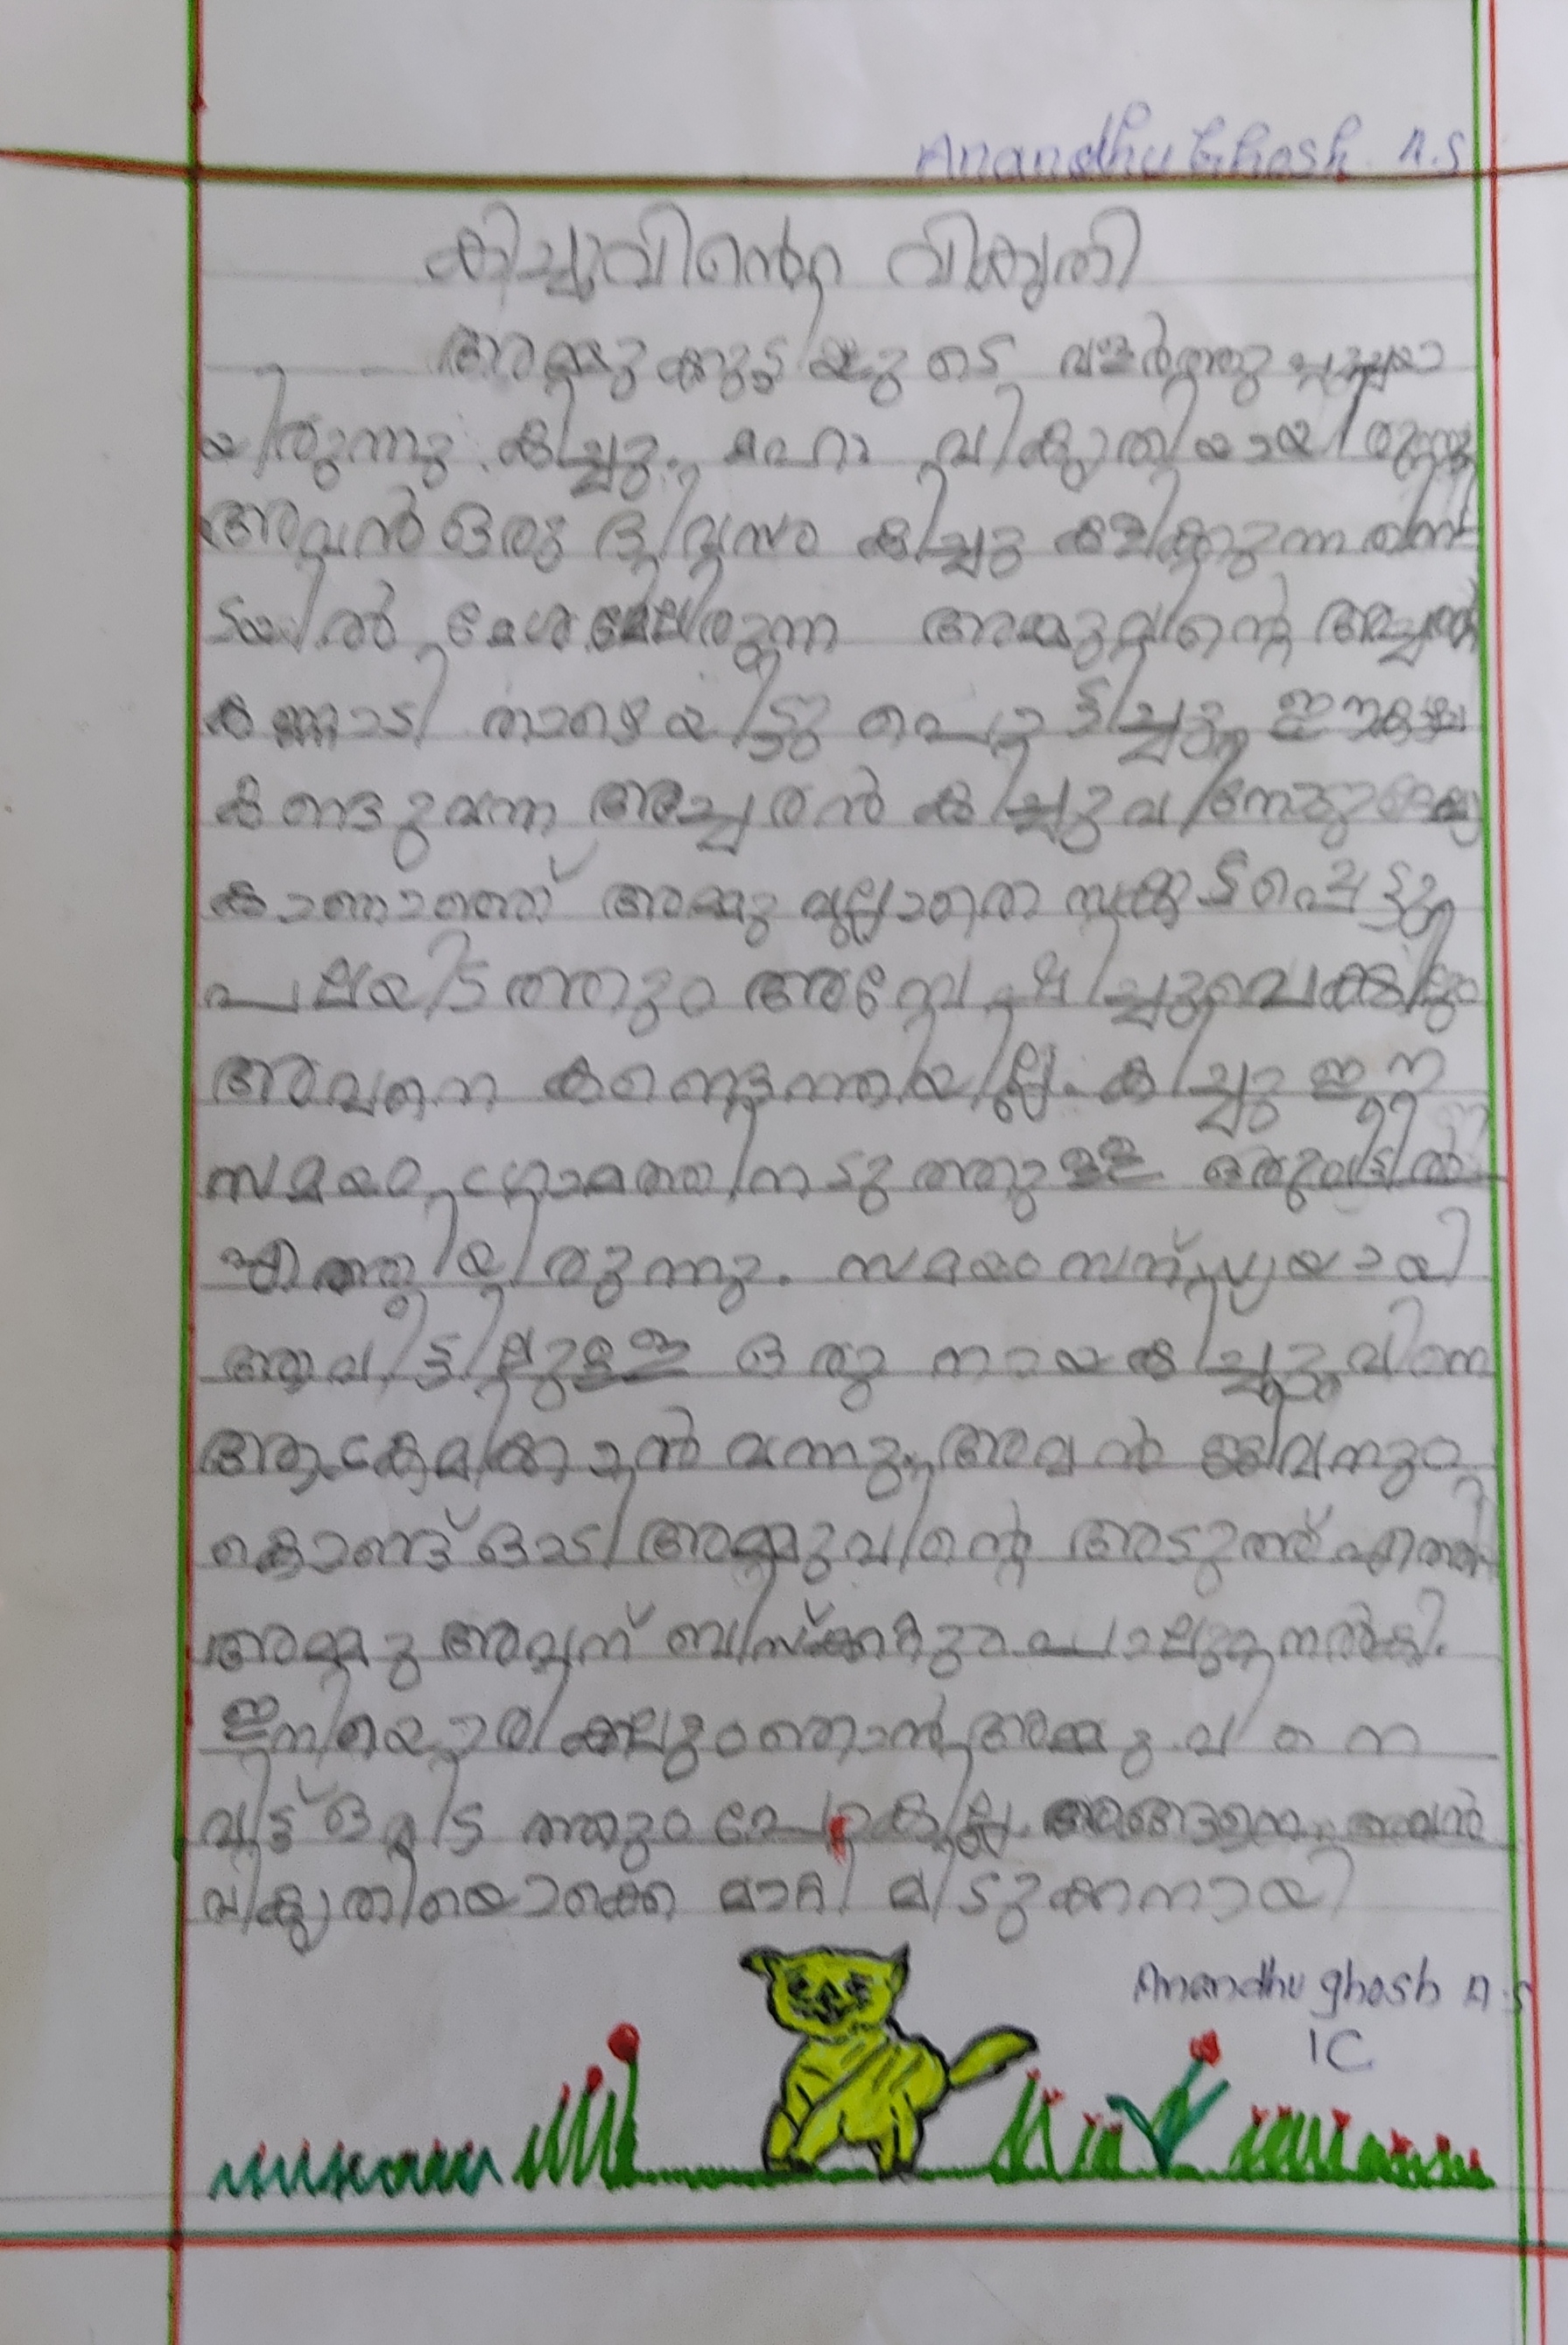 Anandhu Ghosh. A.S
കിച്ചുവിൻ്റെ വികൃതി
അമ്മുക്കുട്ടിയുടെ വളർത്തു പൂച്ചയാ
യിരുന്നു കിച്ചു. മഹാ വികൃതിയായിരുന്നു
അവൻ ഒരു ദിവസം കിച്ചു കളിക്കുന്നതിന്
ടയിൽ മേശമേലിരുന്ന അമ്മുവിന്റെ അച്ഛൻ്റെ
കണ്ണാടി താഴെയിട്ടു പൊട്ടിച്ചു.
കണ്ടുവന്ന അച്ഛൻ കിച്ചുവിനെ
കാണാഞ്ഞ് അമ്മു വല്ലാതെ സങ്കടപ്പെട്ടു
പലയിടത്തും അന്വേഷിച്ചുവെങ്കിലും
അവനെ കണ്ടെത്തിയില്ല. കിച്ചു ഈ
സമയം ഗ്രാമത്തിനടുത്തുള്ള ഒരു വീട്ടിൽ
എത്തിയിരുന്നു. സമയം സന്ധ്യയായി
ആ വീട്ടിലുള്ള ഒരു നായ കിച്ചുവിനെ
ആക്രമിക്കാൻ വന്നു. അവൻ ജീവനും
കൊണ്ട് ഓടി അമ്മുവിന്റെ അടുത്ത് എത്തി
അമ്മു അവന് ബിസ്ക്കറ്റും പാലും നൽകി.
ഇനിയൊരിക്കലും ഞാൻ അമ്മുവിനെ
വിട്ട് ഒരിടത്തും പോകില്ല. അങ്ങനെ അവൻ
വികൃതിയൊക്കെ മാറി മിടുക്കനായി
Anandhu ghosh A.S
1C